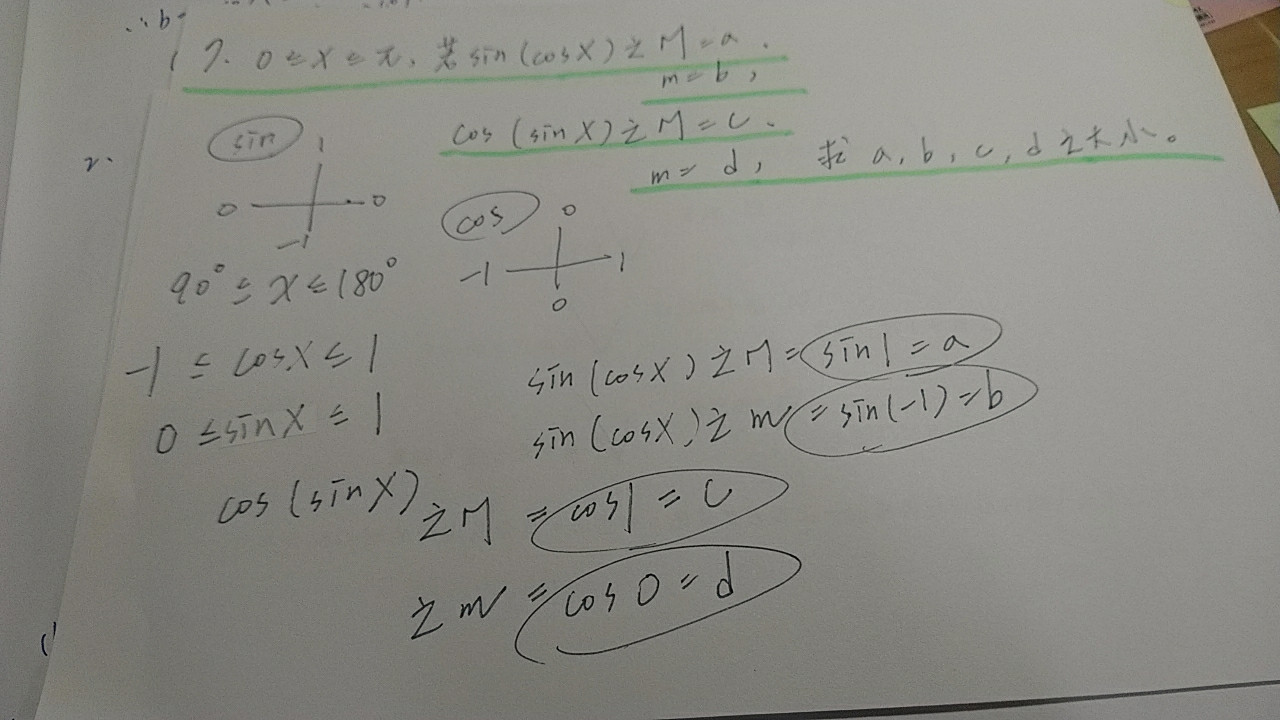 ∴b
17. 0≤x≤π, 若sin(cosx)之M=a.
m=b,
cos(sinx)之M=c.
m=d, 求a,b,c,d之大小。
sin
1
0 0
-1
cos
0
-1 1
0
90°≤x≤180°
-1≤cosx≤1
0≤sinx≤1
sin(cosx)之M=sin1=a
sin(cosx)之m=sin(-1)=b
cos(sinx)之M=cos1=c
之m=cos0=d